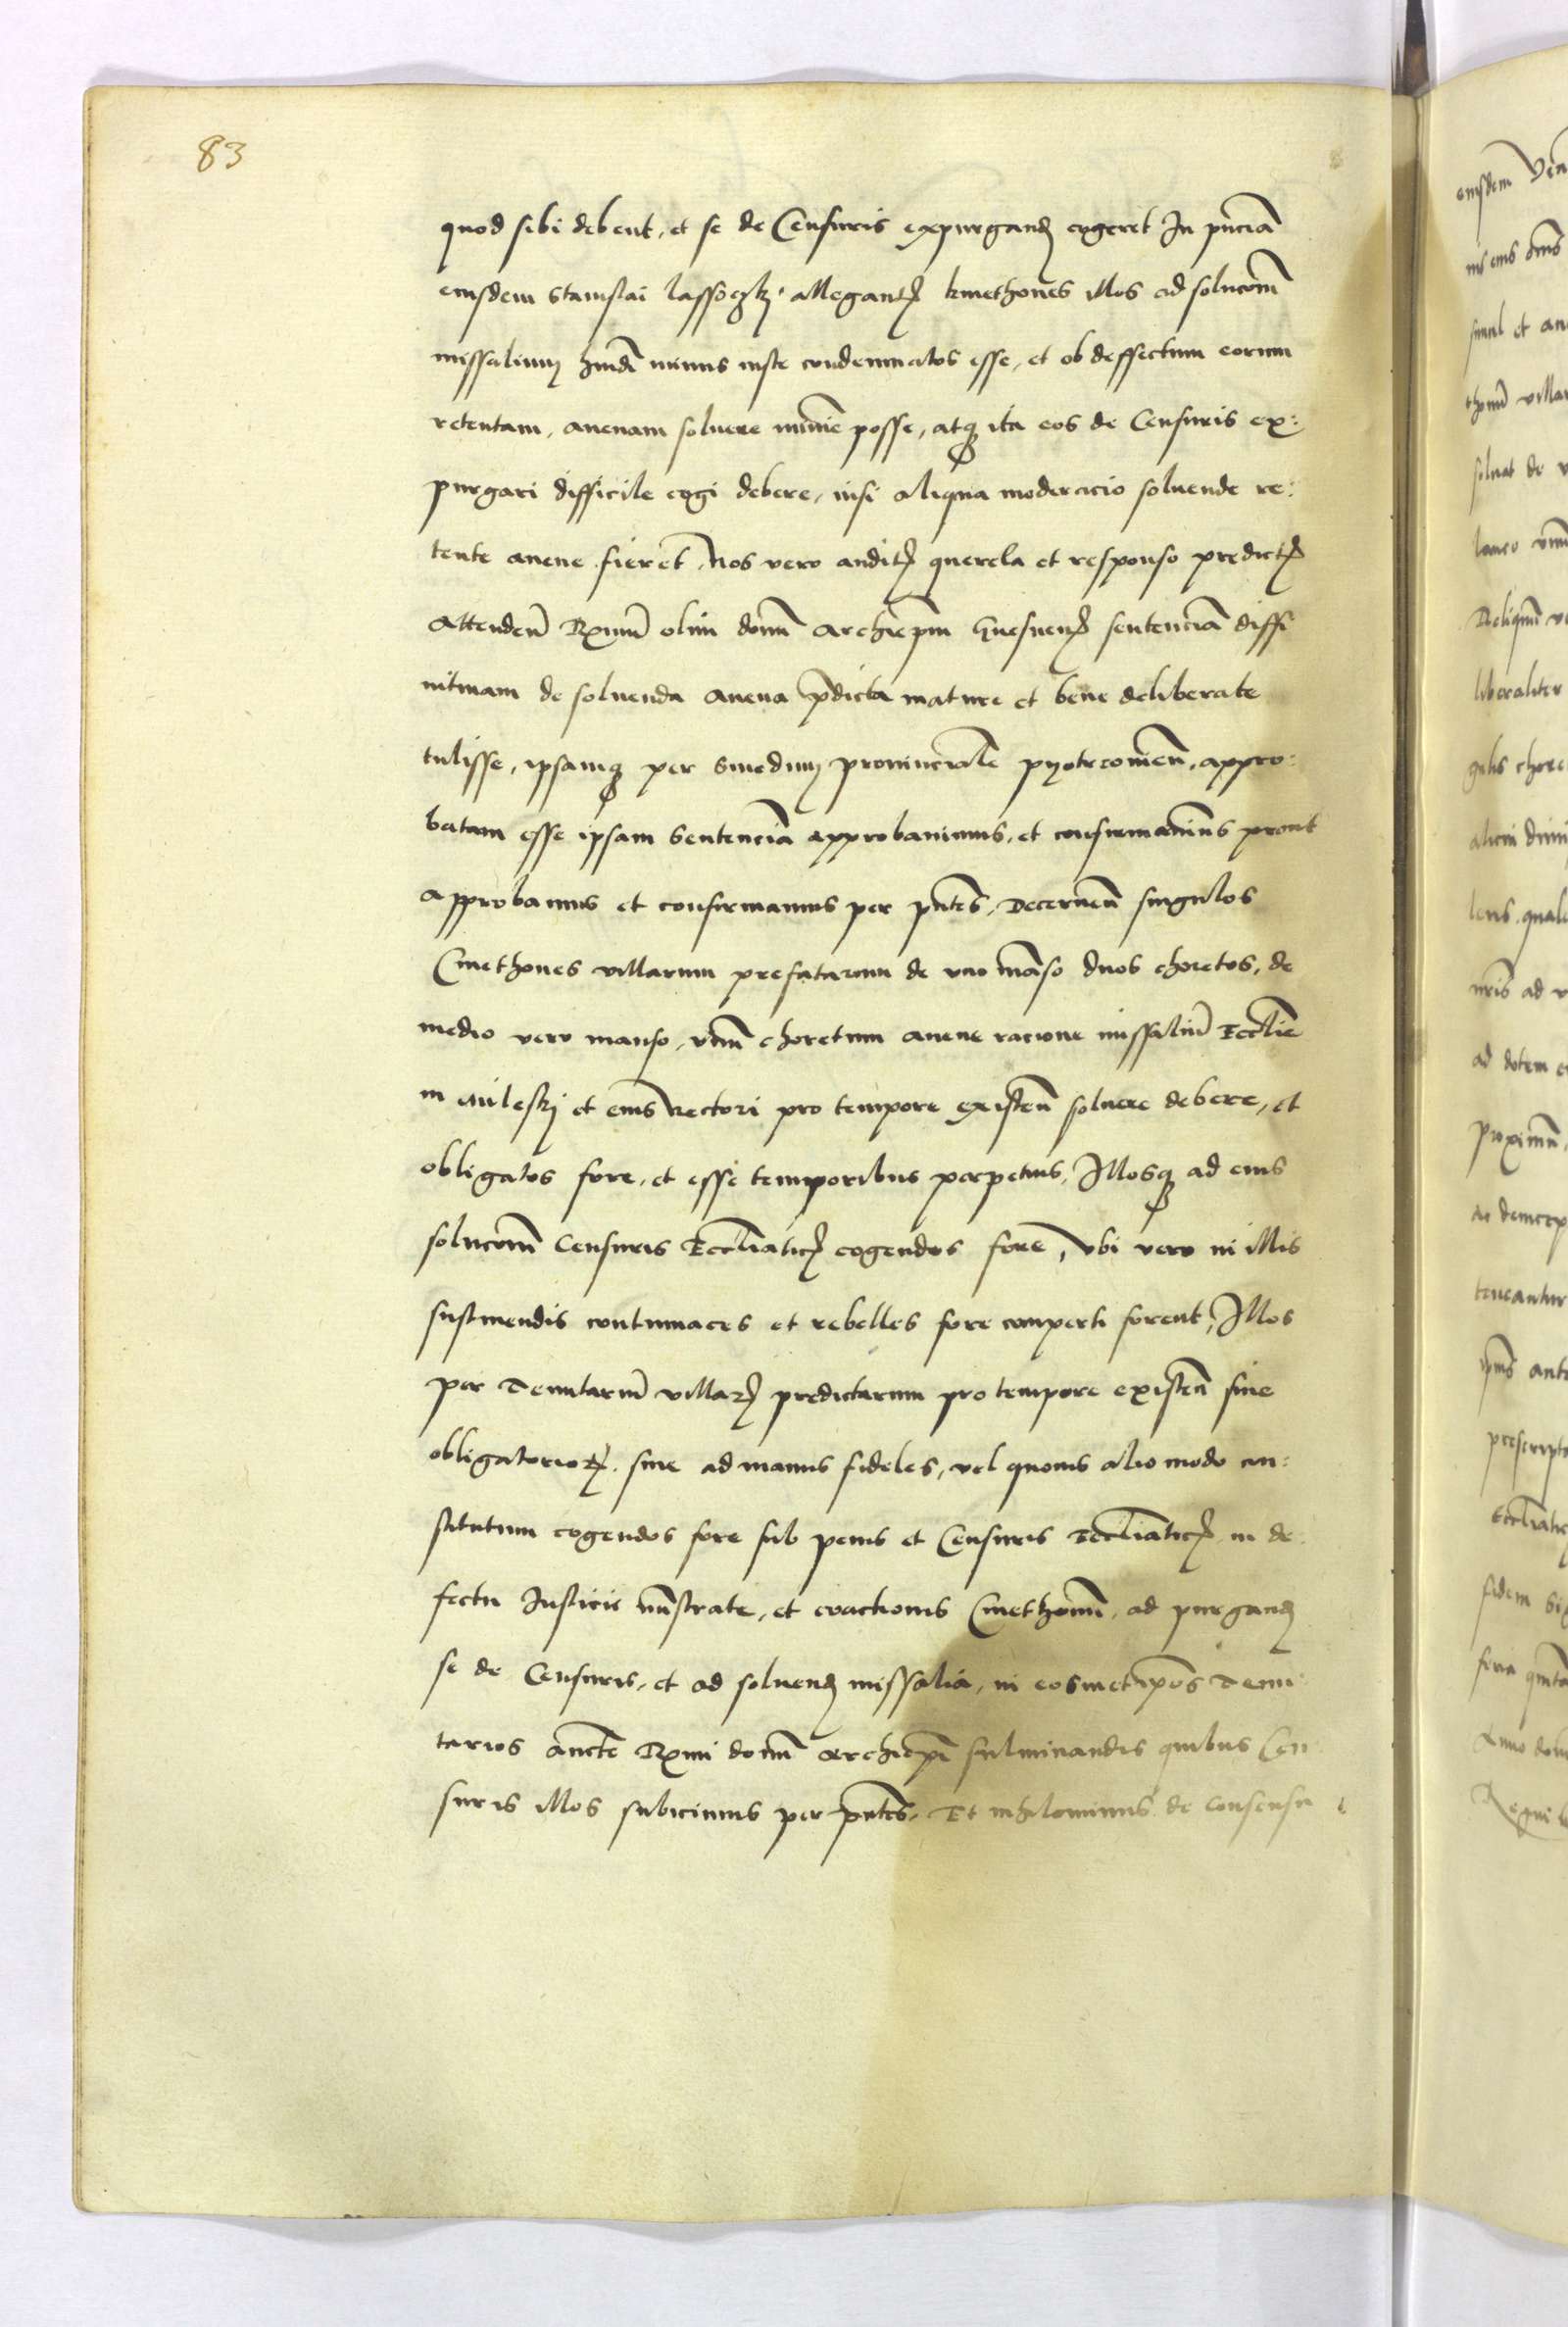 83
quod sibi debent, et se de Censuris expurgand cogeret In pnciā
eiusdem Stanislai lassoczki allegantꝭ kmethones illos ad solucōm
missalium hmōi minus iuste condemnatos esse, et ob deffectum eorum
retentam, auenam soluere minie posse, atqꝫ ita eos de Censuris ex:
purgari difficile cogi debere, nisi aliqua moderacio soluende re:
tente auene fieret, Nos vero auditꝭ querela et responso predictꝭ
Attenden̄ Rxmū olim domū archiepm̄ Gnesnenꝭ sentenciā diffi
nitiuam de soluenda auena p̄dicta mature et bene deliberate
tulisse, ipsamqꝫ per Sinodum prouincialē pyotrcouien̄, appro:
batam esse ipsam Sentenciā approbauimus, et confirmauimus prout
approbamus et confirmamus per pn̄tes, Decernen̄ singulos
Cmethones villarum prefatarum de vno māso duos choretos, de
medio vero manso, vnū choretum auene racione missaliū Eccl̄ie
in et eius rectori pro tempore existen̄ soluere debere, et
obligatos fore, et esse temporibus perpetuis, Illosqꝫ ad eius
solucōm Censuris Eccl̄iaticꝭ cogendos fore, vbi vero in illis
sustinendis contumaces et rebelles fore comperti forent, Illos
per Tenutariū villarꝭ predictarum pro tempore existen̄ siue
obligatoriorꝭ, siue ad manus fideles, vel quouis alio modo con:
stitutum cogendos fore sub penis et Censuris Eccl̄iaticꝭ in de:
fectu Iusticie mn̄strate, et coactionis Cmethonū, ad purgand
se de Censuris, et ad soluend missalia, in eosmet ip̄os Tenu
tarios aucte Rxmi domī archiepī fulminandis quibus Cen
suris illos subicimus per pn̄tes, Et nihilominus de consensu